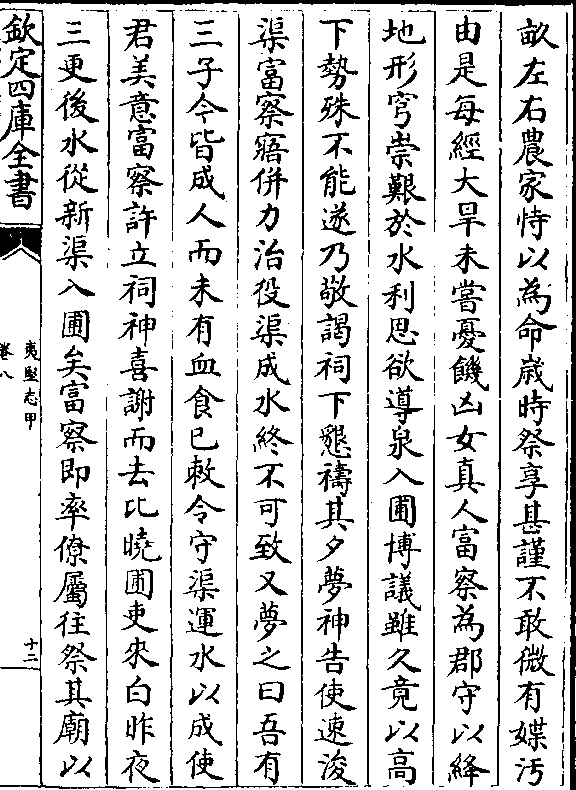 畝左右農家恃以為命歲時祭享甚謹不敢微有媟汚
由是每經大旱未嘗憂饑凶女真人富察為郡守以絳
地形穹崇艱於水利思欲導泉入圃博議雖久竟以高
下勢殊不能遂乃敬謁祠下懇禱其夕夢神告使速浚
渠富察寤併力治役渠成水終不可致又夢之曰吾有
三子今皆成人而未有血食已敕令守渠運水以成使
君美意富察許立祠神喜謝而去比曉圃吏來白昨夜
三更後水從新渠入圃矣富察即率僚屬往祭其廟以
欽定四庫全書
夷堅志甲
卷八
十二